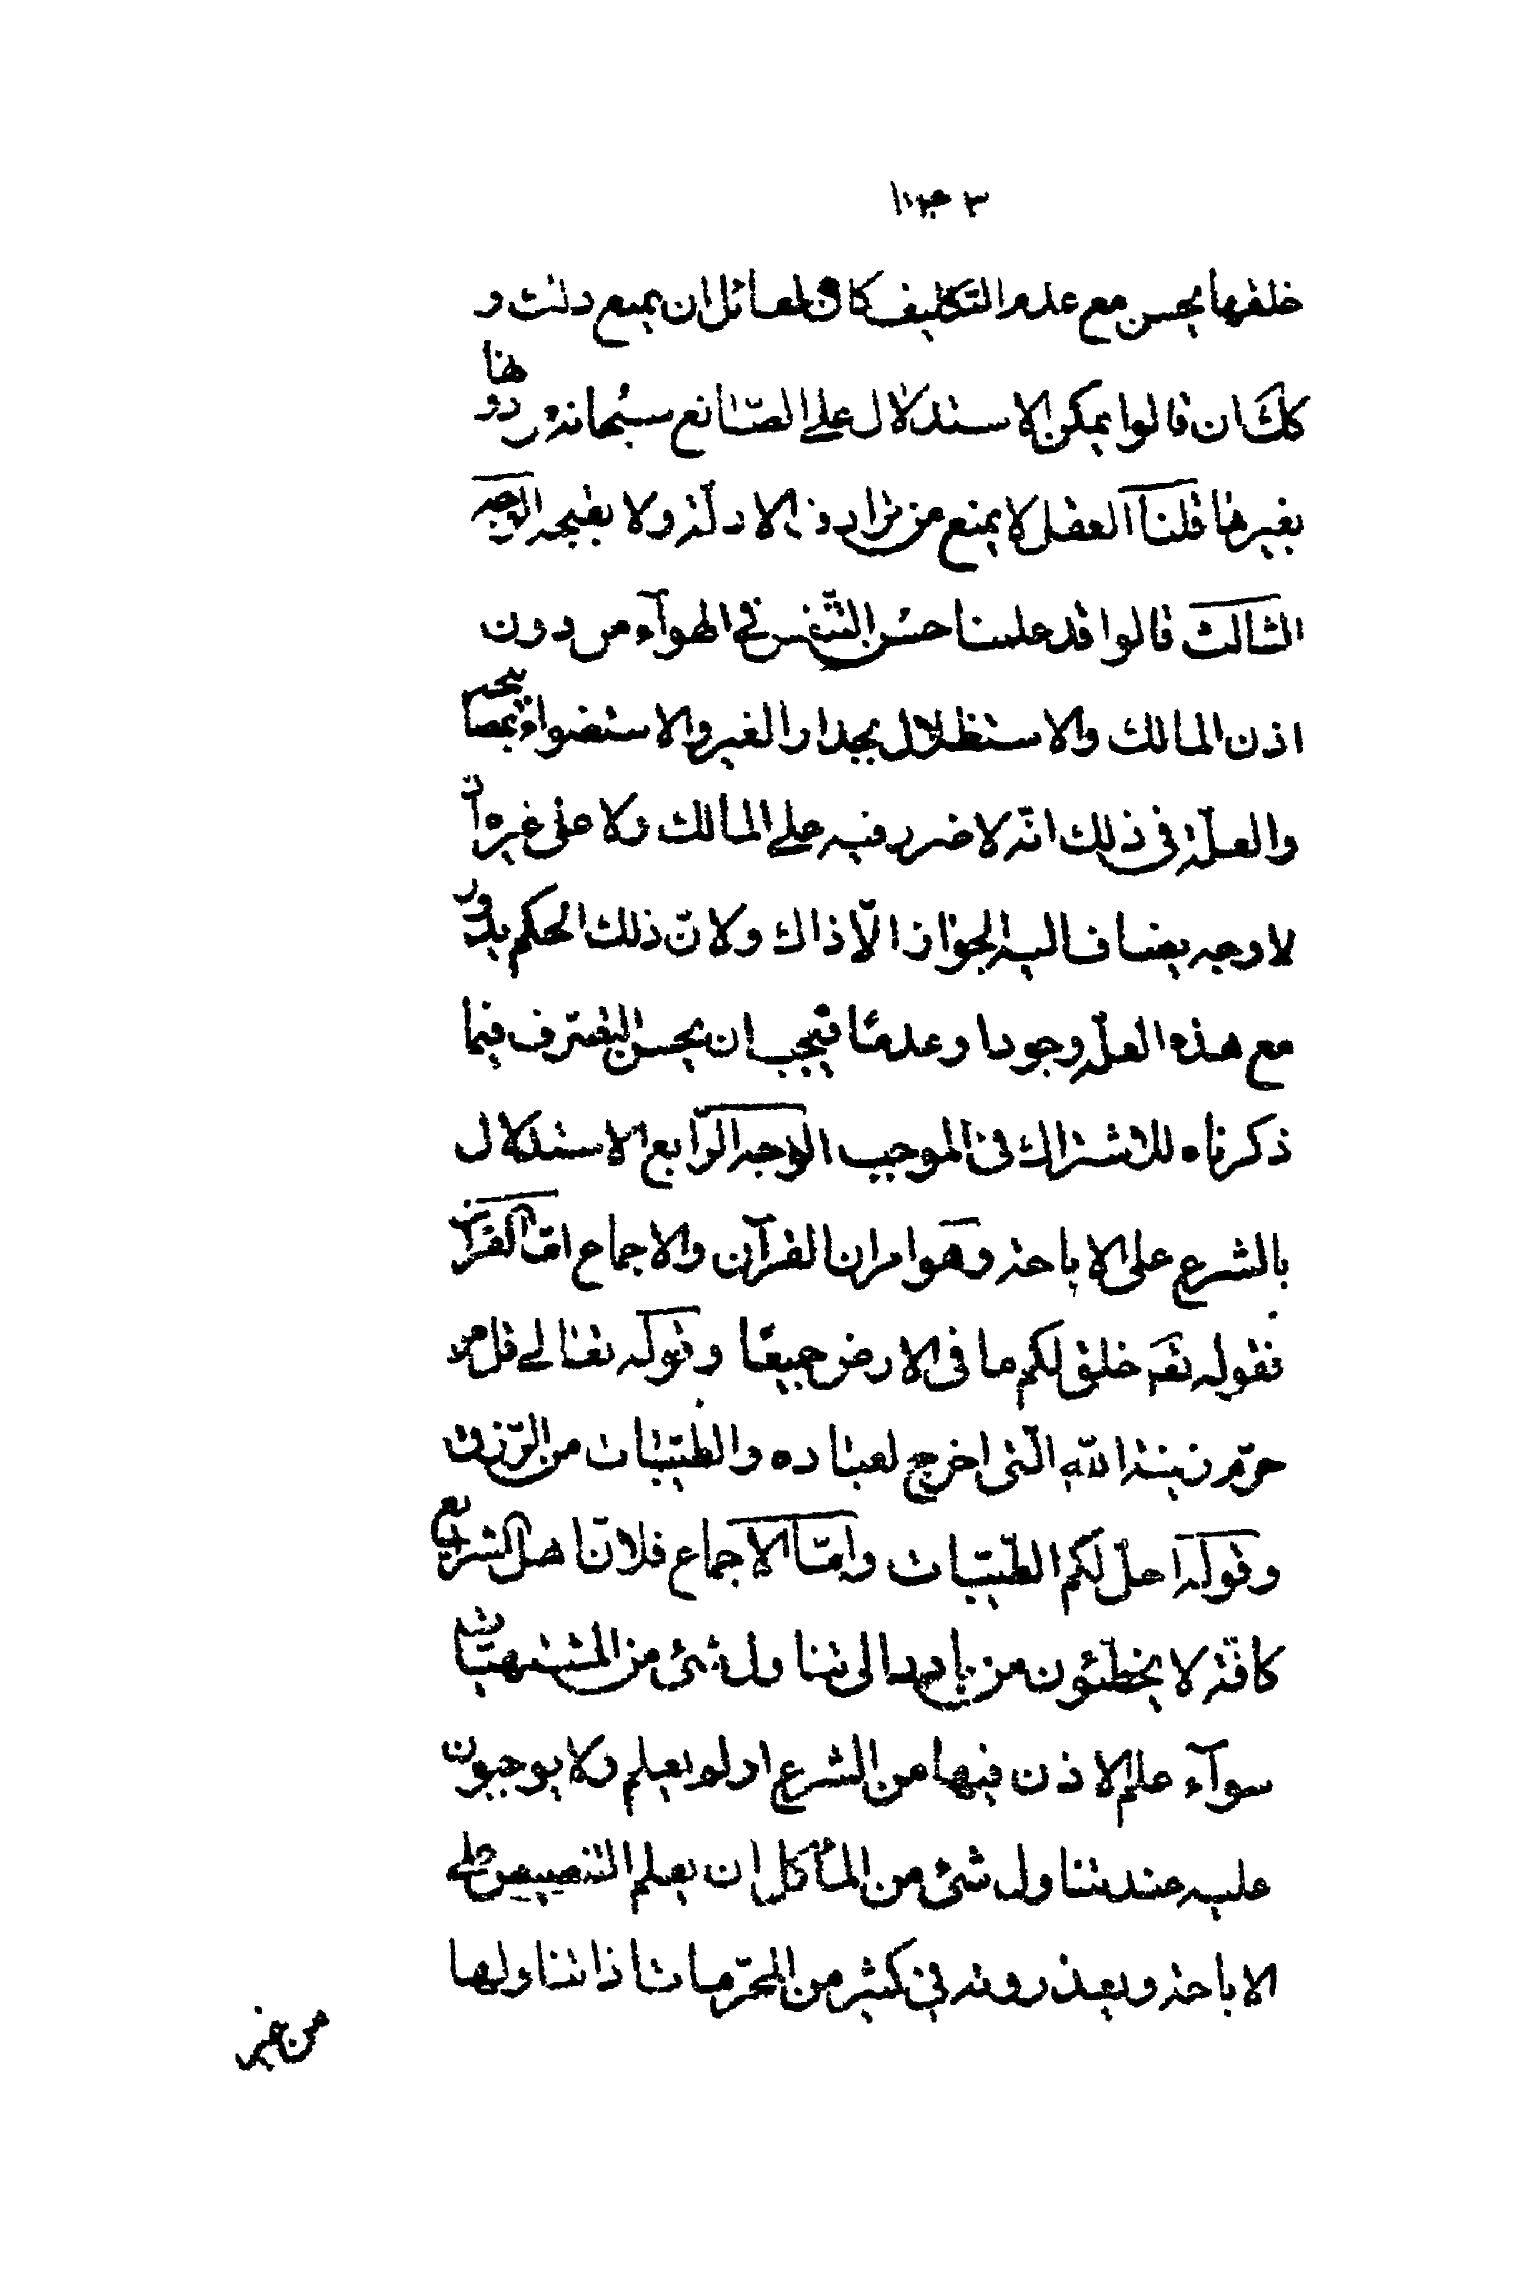 خلقها يحسن مع عدم التكليف كان لقائل ان يمنع ذلك و
كك ان قالوا يمكن الاستدلال على الصّانع سبحانه بدونها و
بغيرها قلنا العقل لا يمنع من ترادف الادلّة ولا يقبحه الوجه
الثالث قالوا قد علمنا حسن التّنفس في الهوآء من دون
اذن المالك والاستظلال بجدار الغير والاستضواء بمصباحه
والعلّة في ذلك انّه لا ضرر فيه على المالك ولا على غيره اذ
لا وجه يضاف اليه الجواز الّا ذاك ولانّ ذلك الحكم يدور
مع هذه العلّة وجودا وعدمًا فيجب ان يحسن التصرّف فيما
ذكرناه للاشتراك في الموجب الوجه الرّابع الاستدلال
بالشرع على الاباحة وهو امران القرآن والاجماع امّا القرآن
فقوله تعَ خلق لكم ما في الارض جميعًا وقوله تعالى قل من
حرّم زينة اللّه الّتى اخرج لعباده والطيّبات من الرّزق
وقوله احلّ لكم الطّيّبات وامّا الاجماع فلانّا اهل الشرايع
كافّة لا يخطّئون من بادر الى تناول شئ من المشتهيّات
سوآء علم الاذن فيها من الشرع او لم يعلم ولا يوجبون
عليه عند تناول شئ من المأكل ان يعلم التنصيص على
الاباحة ويعذرونه في كثير من المحرّمات اذا تناولها
من غير